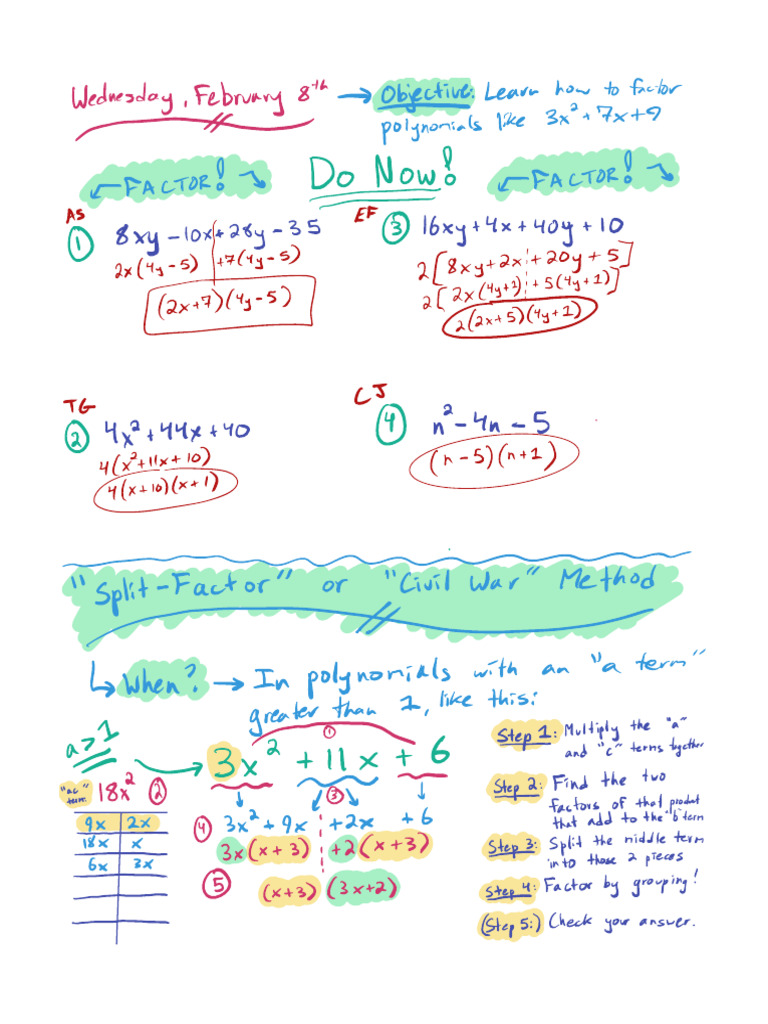 Wednesday, February 8th → Objective: Learn how to factor
polynomials like 3x² + 7x + 9
FACTOR! Do Now! FACTOR!
AS
① 8xy - 10x + 28y - 35
2x(4y-5) +7(4y-5)
(2x+7)(4y-5)
EF
③ 16xy + 4x + 40y + 10
2[8xy + 2x + 20y + 5]
2[2x(4y+1) + 5(4y+1)]
2(2x+5)(4y+1)
TG
② 4x² + 44x + 40
4(x² + 11x + 10)
4(x+10)(x+1)
CJ
④ n² - 4n - 5
(n-5)(n+1)
"Split-Factor" or "Civil War" Method
When? → In polynomials with an "a term"
greater than 1, like this:
a>1
①
3x² + 11x + 6
"ac" term: 18x² ②
9x 2x
18x x
6x 3x
③
④ 3x² + 9x + 2x + 6
3x(x+3) +2(x+3)
⑤ (x+3)(3x+2)
Step 1: Multiply the "a"
and "c" terms together
Step 2: Find the two
factors of that product
that add to the "b term
Step 3: Split the middle term
into those 2 pieces
Step 4: Factor by grouping!
(Step 5:) Check your answer.